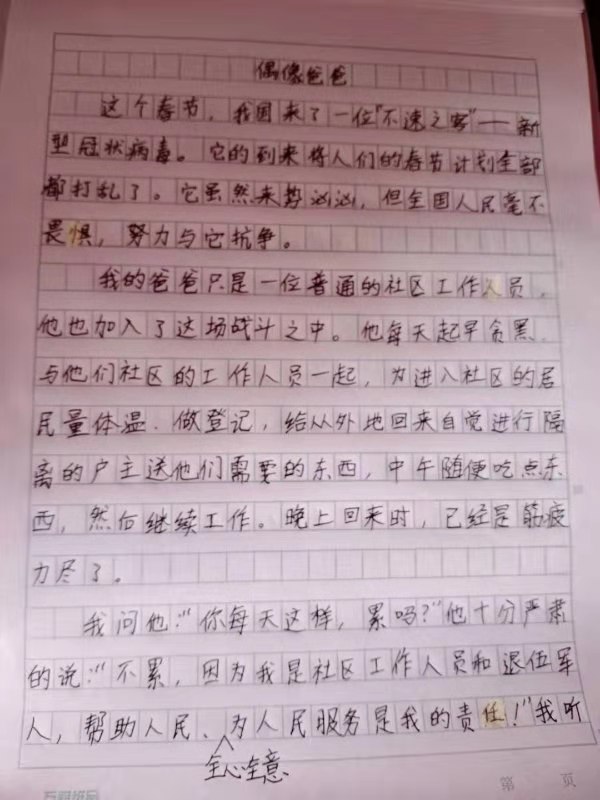 偶像爸爸
这个春节，我国来了一位"不速之客"——新
型冠状病毒。它的到来将人们的春节计划全部
都打乱了。它虽然来势汹汹，但全国人民毫不
畏惧，努力与它抗争。
我的爸爸只是一位普通的社区工作人员，
他也加入了这场战斗之中。他每天起早贪黑，
与他们社区的工作人员一起，为进入社区的居
民量体温、做登记，给从外地回来自觉进行隔
离的户主送他们需要的东西，中午随便吃点东
西，然后继续工作。晚上回来时，已经是筋疲
力尽了。
我问他："你每天这样，累吗？"他十分严肃
的说："不累，因为我是社区工作人员和退伍军
人，帮助人民、为人民服务是我的责任！"我听
全心全意
第 页